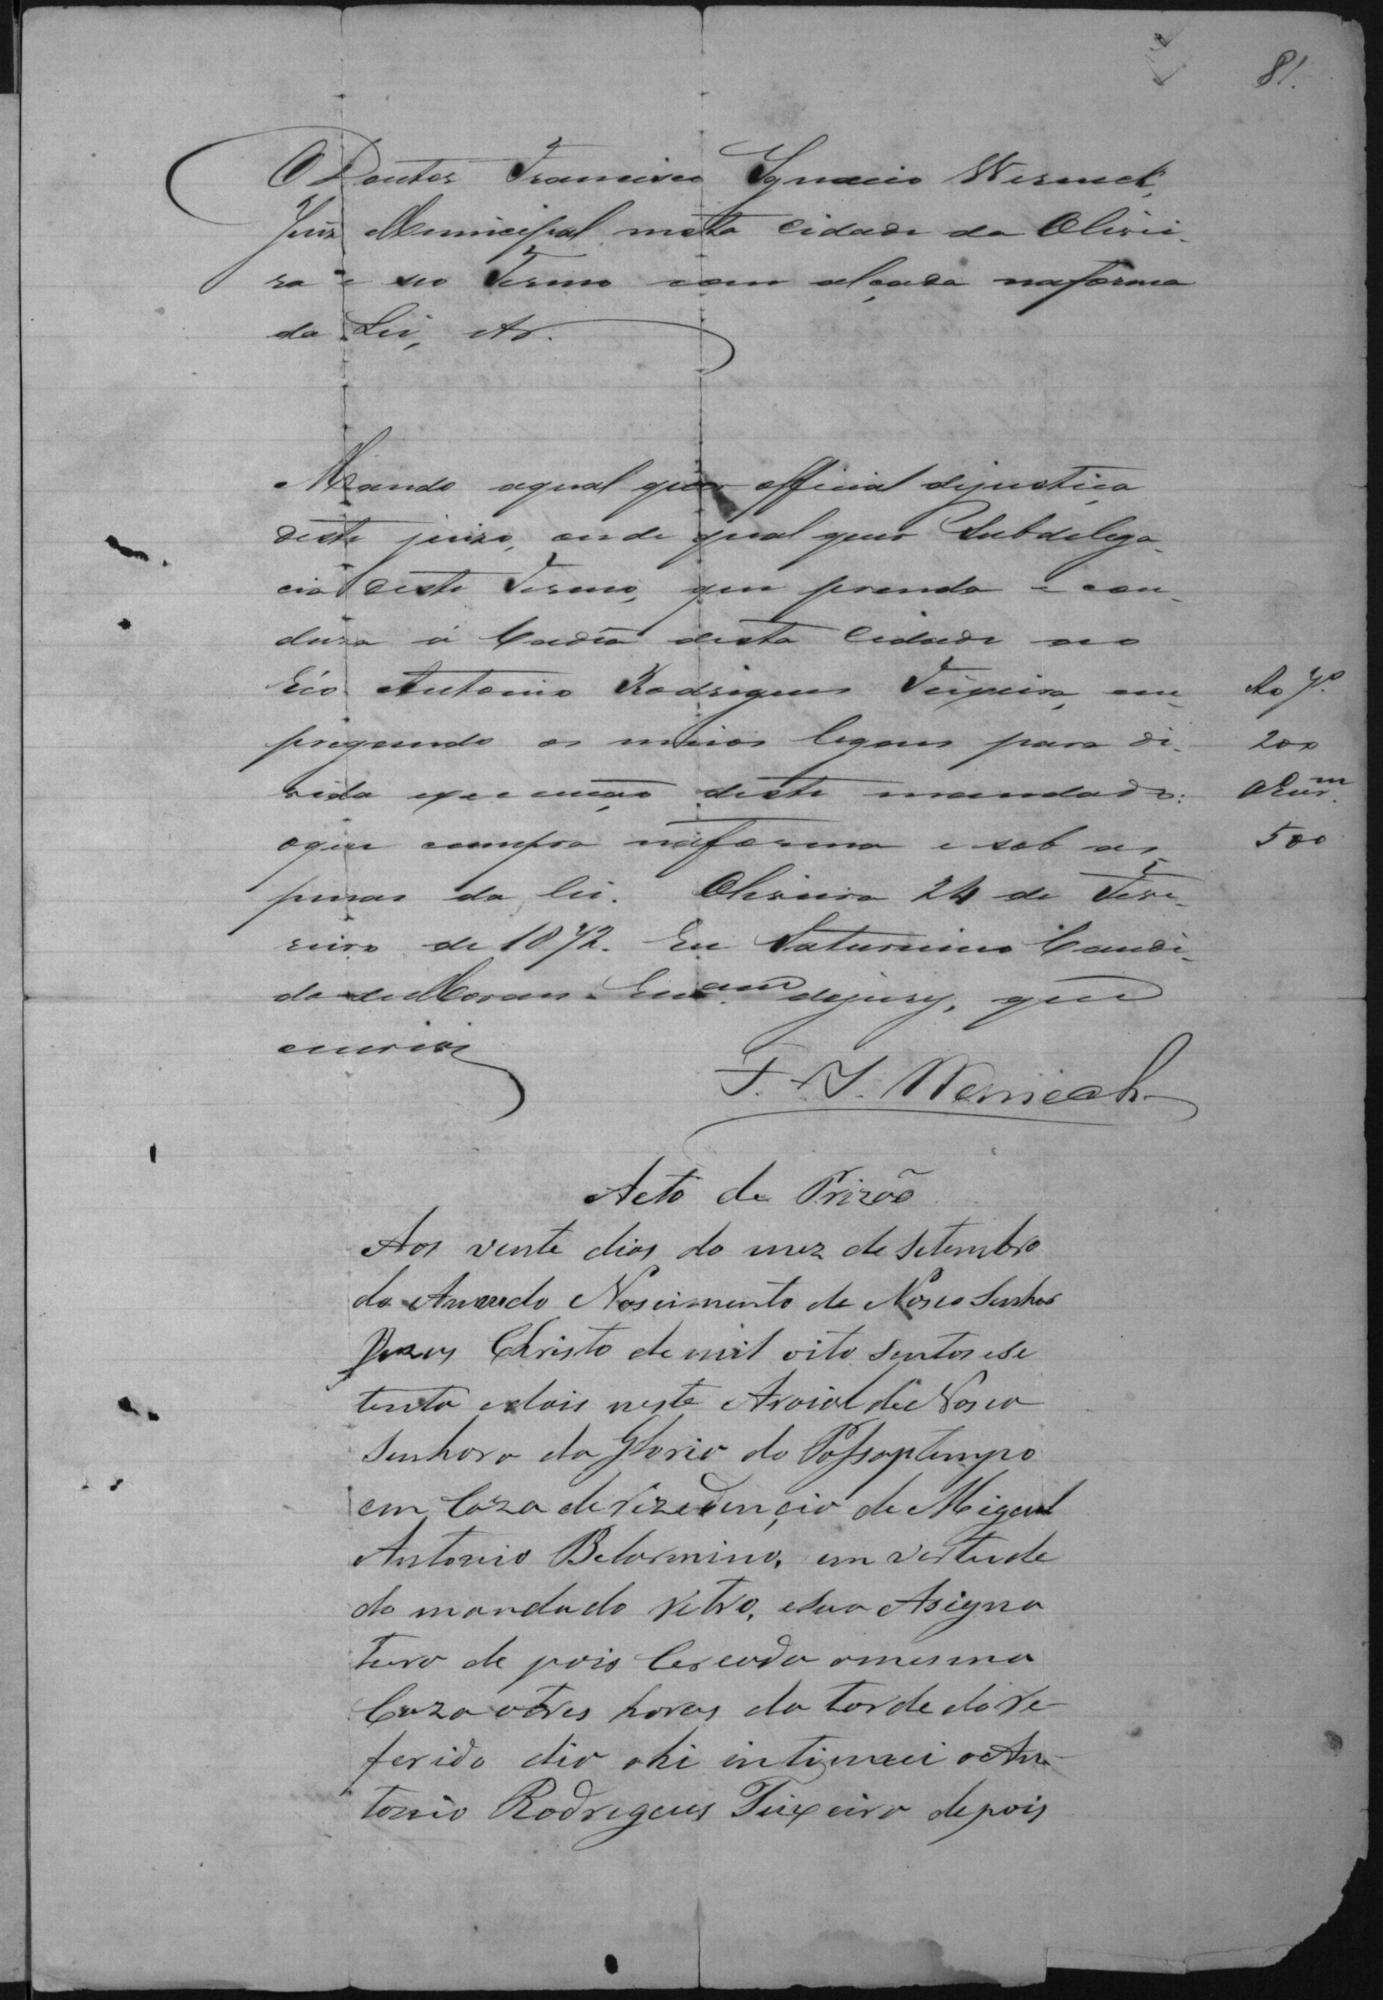 81.
O Doutor Francisco Ignacio Werneck,
Juiz Municipal nesta Cidade da Olivei-
ra e seo Termo com alçada naforma
da Lei, &.
Mando aqual quer official dejustiça
deste juizo, ou de qual quer Subdelega-
cia deste Termo, que prenda e con-
duza á Cadêa desta Cidade ao
Réo Antonio Rodrigues Teixeira, em-
pregando os meios legaes para de-
vida execução deste mandado:
oque cumpra naforma e sob as
penas da lei. Oliveira 24 de Feve-
reiro de 1872. Eu Saturnino Candi-
do de Moraes Escr.am dejury, que
escrivi
Ao J.o
200
500
F. I. Werneck
Acto de Prizõo
Aos vente dias do mez de Setembro
do Anno do Nascimento de Nosso Senhor
Jezus Christo de mil oito sentos e se
tenta e dois neste Araial de Nosa
Senhora da Gloria do Passaptempo
em Caza de rezedençia de Miguel
Antonio Belarmino, em vertude
do mandado retro, e sua Asigna
tura de pois Cercada amesma
Caza as tres horas da tarde do re-
ferido dia ahi intimei a An-
tonio Rodrigues Teixeira depois